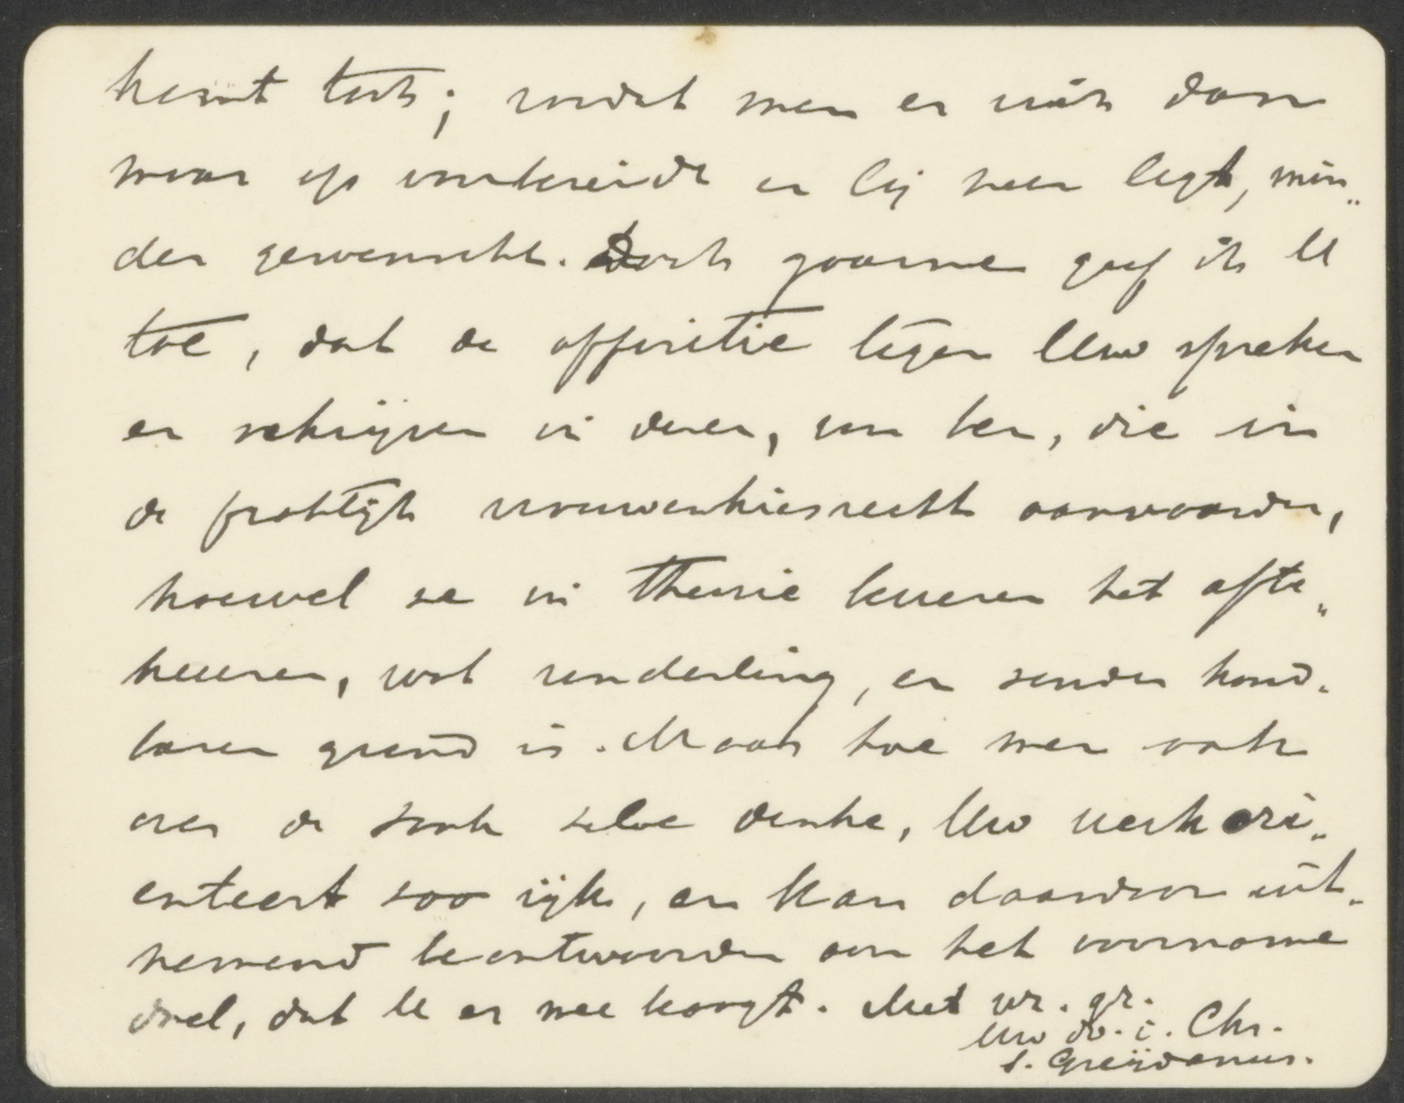 komt toch; zoodat men er zich dan
maar op voorbereidt en bij neer legt, min„
der gewenscht. Doch gaarne geef ik U
toe, dat de oppositie tegen Uw spreken
en schrijven in dezen, van hen, die in
de praktijk vrouwenkiesrecht aanvaarden,
hoewel ze in theorie beweren het af te„
keuren, wat zonderling, en zonder houd„
baren grond is. Maar hoe men ook
over de zaak zelve denke, Uw werk ori„
enteert zoo rijk, en kan daardoor uit„
nemend beantwoorden aan het voorname
doel, dat U er mee beoogt. Met vr. gr.
Uw dv. i. Chr.
S. Greijdanus.